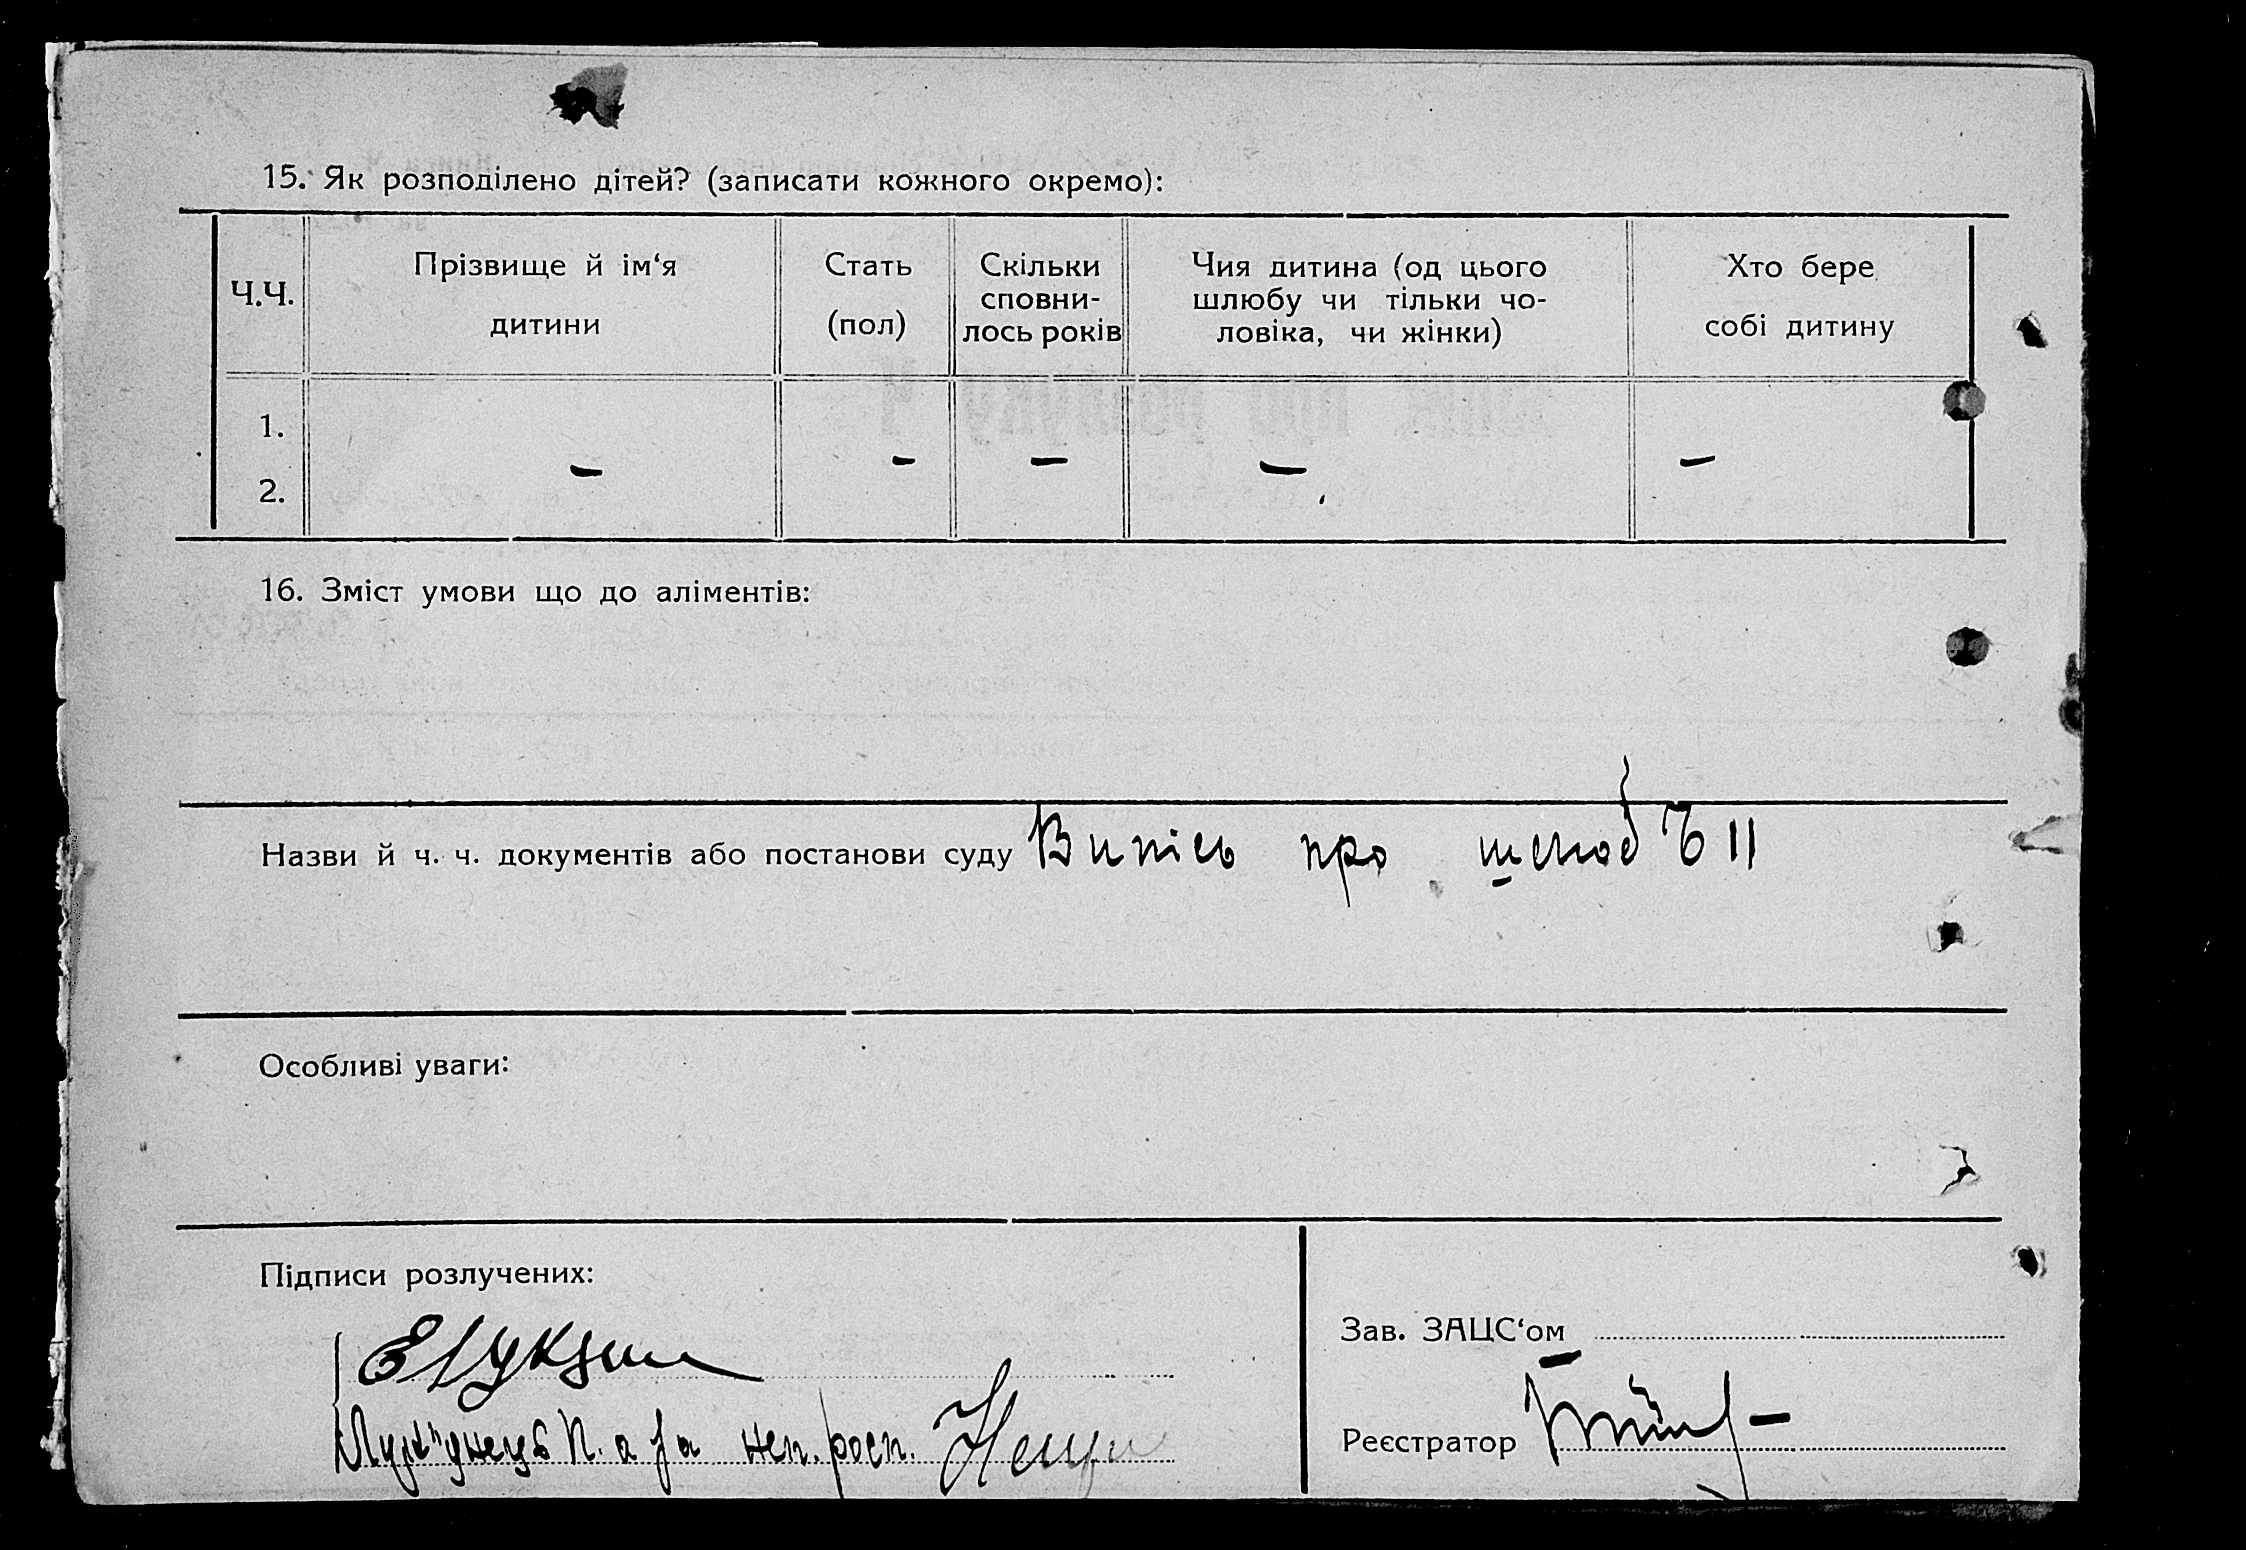 15. Як розподілено дітей? (записати кожного окремо):
Ч.Ч.
Прізвище й ім‘я
дитини
Стать
(пол)
Скільки
сповни-
лось років
Чия дитина (од цього
шлюбу чи тільки чо-
ловіка, чи жінки)
Хто бере
собі дитину
1.
2.
— — — — —
16. Зміст умови що до аліментів:
Назви й ч. ч. документів або постанови суду Випісь про шлюб Ч 11
Особливі уваги:
Підписи розлучених:
а за неп. росп.
Зав. ЗАЦС‘ом —
Реєстратор